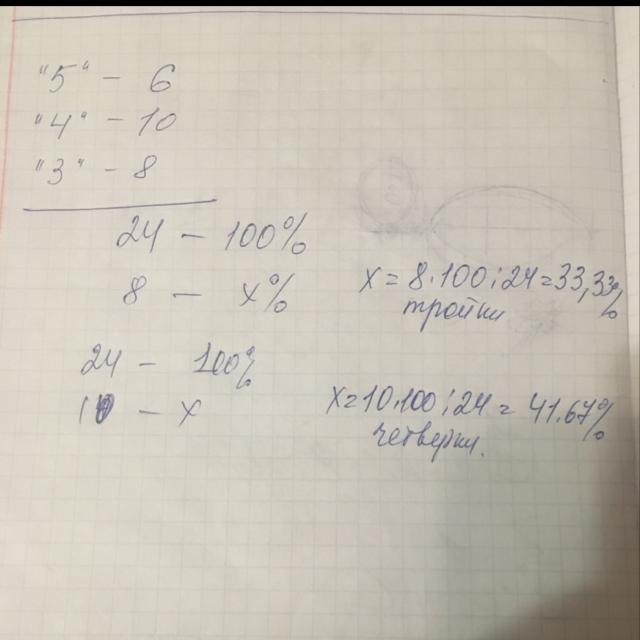 "5" - 6
"4" - 10
"3" - 8
24 - 100%
8 - x%
x = 8·100:24=33,33%
тройки
24 - 100%
10 - x
x=10·100:24 = 41.67%
четверки.